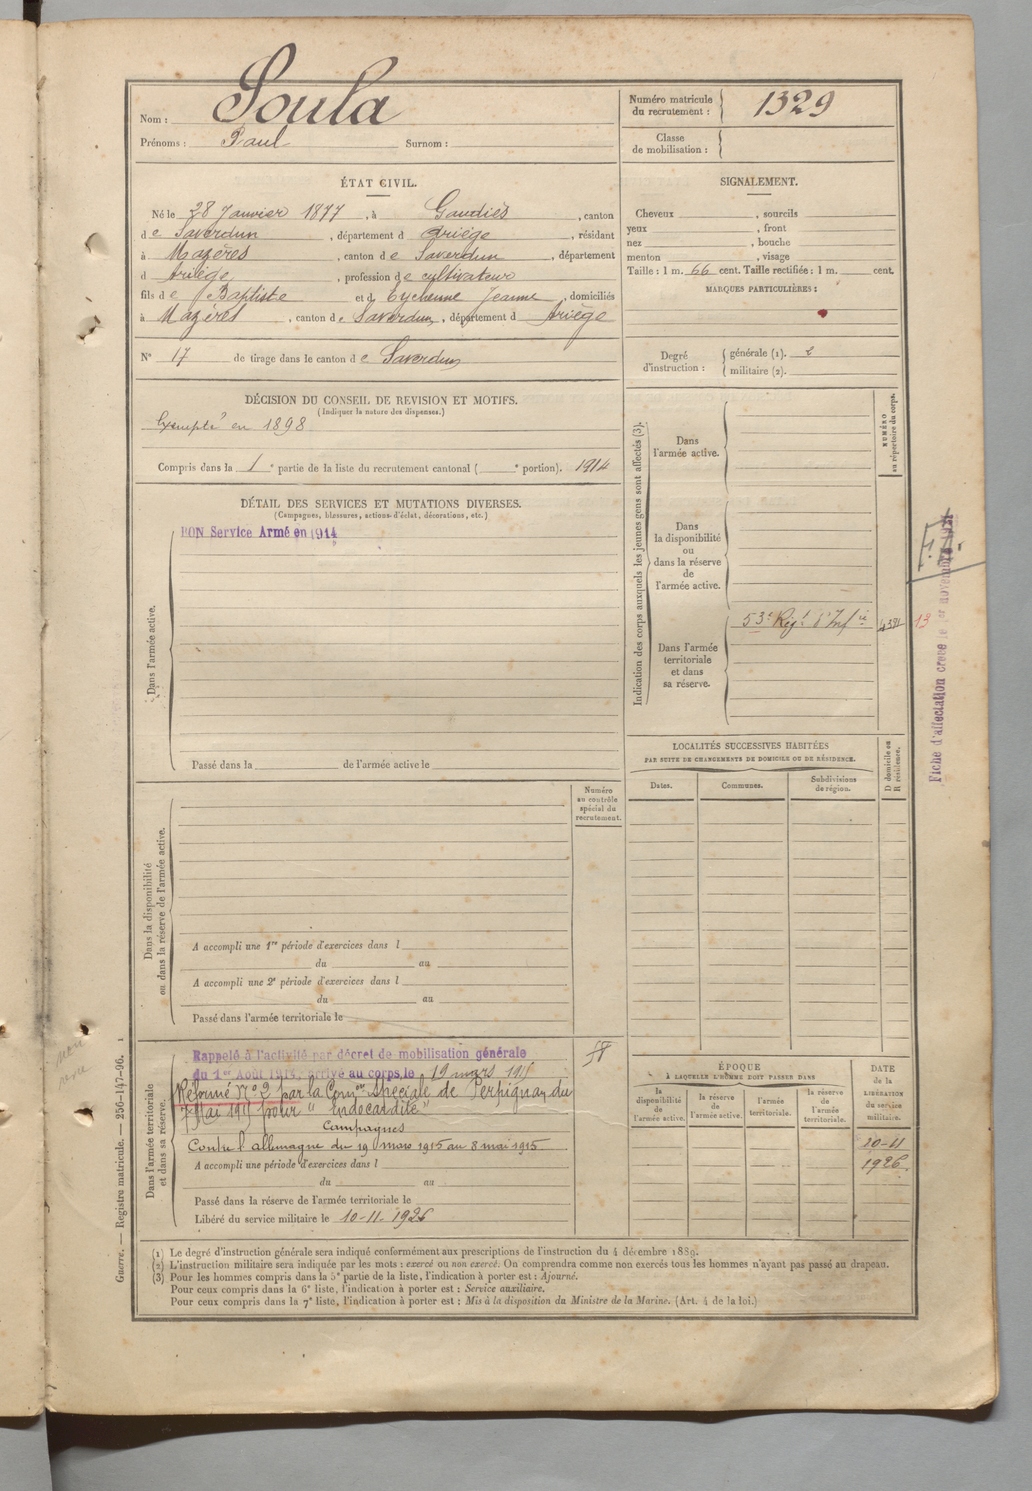 Nom : Soula
Prénoms : Paul Surnom :
Numéro matricule du recrutement : 1329
Classe de mobilisation :
ÉTAT CIVIL.
Né le 28 Janvier 1877, à Gaudiès, canton
de Saverdun, département d Ariège, résidant
à Mazères, canton de Saverdun, département
d Ariège, profession de cultivateur
fils de Baptiste et d Eychenne Jeanne, domiciliés
à Mazères, canton de Saverdun, département d Ariège
N° 17 de tirage dans le canton de Saverdun
SIGNALEMENT.
Cheveux , sourcils
yeux , front
nez , bouche
menton , visage
Taille : 1 m. 66 cent. Taille rectifiée : 1 m. cent.
MARQUES PARTICULIÈRES :
Degré d'instruction : générale (1). 2
militaire (2).
DÉCISION DU CONSEIL DE REVISION ET MOTIFS.
(Indiquer la nature des dispenses.)
Exempté en 1898
Compris dans la 1e partie de la liste du recrutement cantonal ( e portion). 1914
DÉTAIL DES SERVICES ET MUTATIONS DIVERSES.
(Campagnes, blessures, actions d'éclat, décorations, etc.)
BON Service Armé en 1914
Dans l'armée active.
Passé dans la de l'armée active le
Indication des corps auxquels les jeunes gens sont affectés (3).
NUMÉRO au répertoire du corps.
Dans l'armée active.
Dans la disponibilité ou dans la réserve de l'armée active.
Dans l'armée territoriale et dans sa réserve.
53e Régt d'Infie
13
Fiche d'affectation créée le 1er novembre
LOCALITÉS SUCCESSIVES HABITÉES
PAR SUITE DE CHANGEMENTS DE DOMICILE OU DE RÉSIDENCE.
Dates. Communes. Subdivisions de région.
D domicile ou R résidence.
Numéro au contrôle spécial du recrutement.
Dans la disponibilité ou dans la réserve de l'armée active.
A accompli une 1re période d'exercices dans l
du au
A accompli une 2e période d'exercices dans l
du au
Passé dans l'armée territoriale le
Dans l'armée territoriale et dans sa réserve.
Rappelé à l'activité par décret de mobilisation générale
du 1er Août 1914, arrivé au corps le 19 mars 1915
Réformé N° 2 par la Comon Spéciale de Perpignan du
7 Mai 1915 pour "Endocardite"
Campagnes
Contre l'allemagne du 19 mars 1915 au 8 mai 1915
A accompli une période d'exercices dans l
du au
Passé dans la réserve de l'armée territoriale le
Libéré du service militaire le 10-11-1926
ÉPOQUE
À LAQUELLE L'HOMME DOIT PASSER DANS
la disponibilité de l'armée active.
la réserve de l'armée active.
l'armée territoriale.
la réserve de l'armée territoriale.
DATE de la LIBÉRATION du service militaire.
10-11
1926
(1) Le degré d'instruction générale sera indiqué conformément aux prescriptions de l'instruction du 4 décembre 1889.
(2) L'instruction militaire sera indiquée par les mots : exercé ou non exercé. On comprendra comme non exercés tous les hommes n'ayant pas passé au drapeau.
(3) Pour les hommes compris dans la 5e partie de la liste, l'indication à porter est : Ajourné.
Pour ceux compris dans la 6e liste, l'indication à porter est : Service auxiliaire.
Pour ceux compris dans la 7e liste, l'indication à porter est : Mis à la disposition du Ministre de la Marine. (Art. 4 de la loi.)
Guerre. — Registre matricule. — 256-147-96.